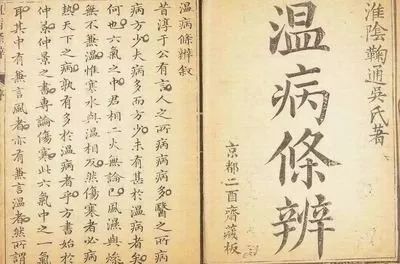 淮陰鞠通吳氏著
温病條辨
京都二酉齋藏板
温病條辨敘
昔淳于公有言人之所病病病多醫之所病
病方少夫病多而方少未有甚於温病者矣
何也六氣之中君相二火無論已風濕與燥
無不兼温惟寒水與温相反然傷寒者必病
熱天下之病孰有多於温病者乎方書始於
仲景仲景之書專論傷寒此六氣中之一氣
耳其中有兼言風者亦有兼言温者然所謂